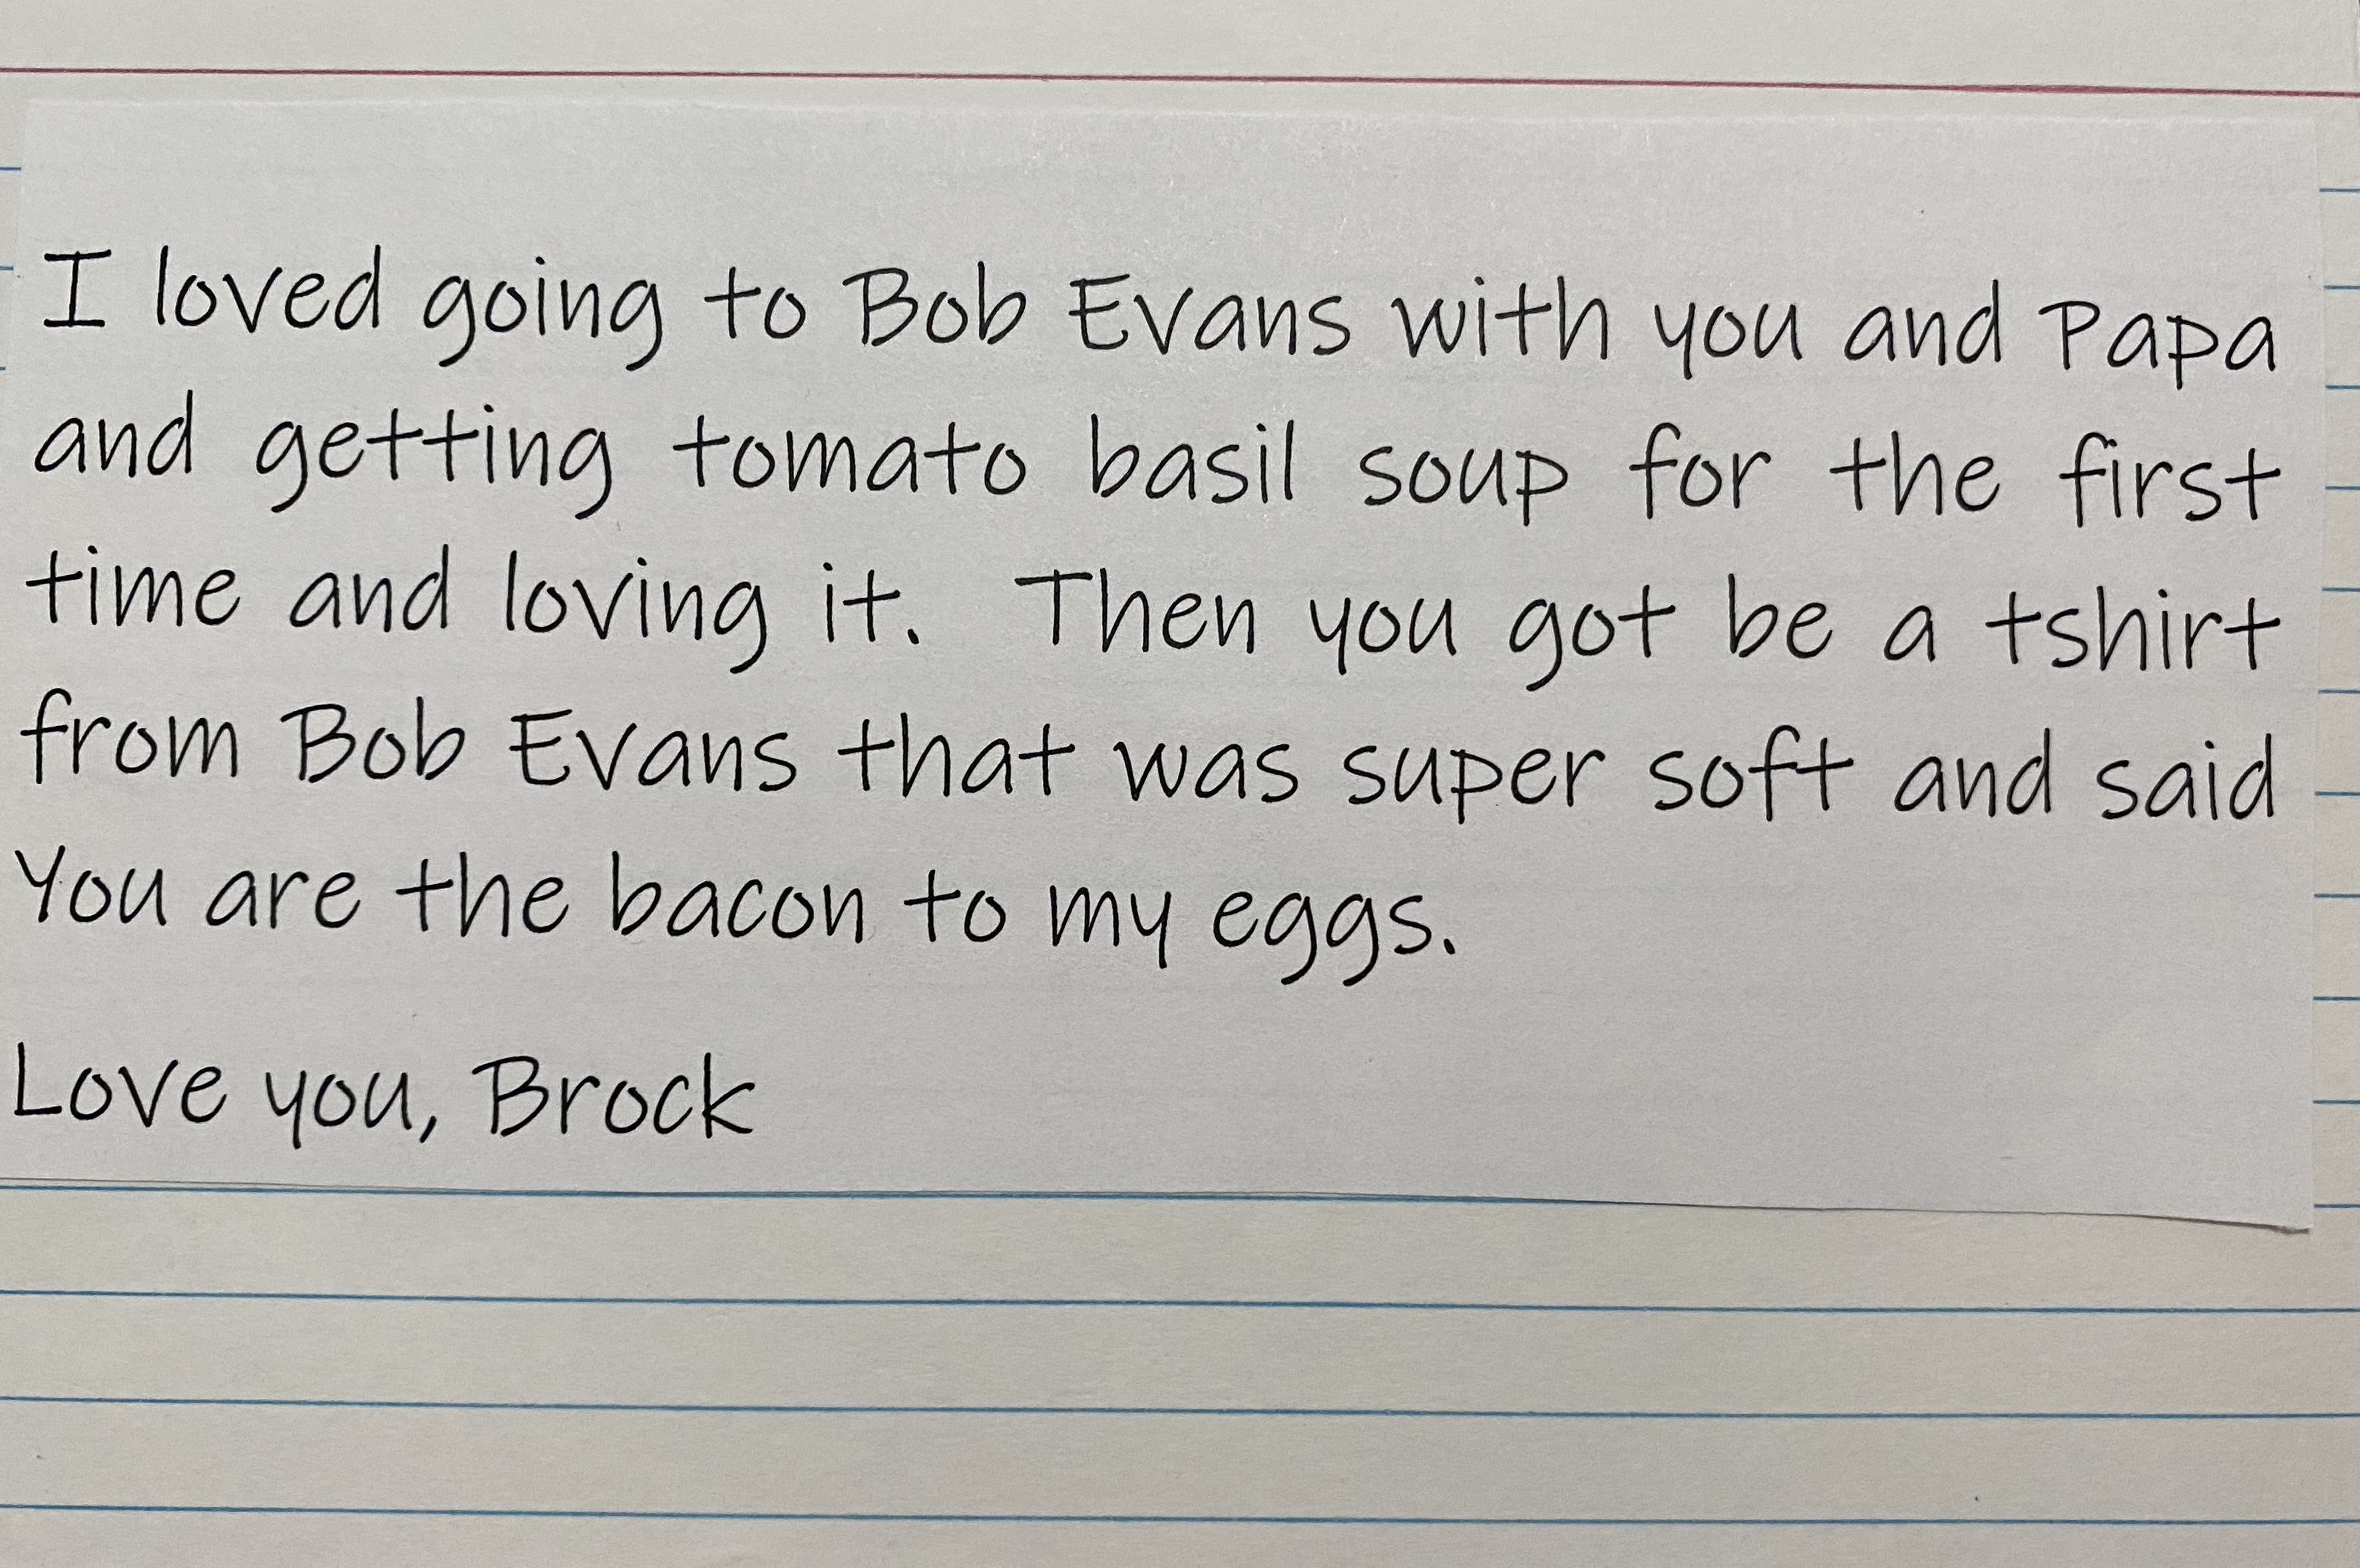 I loved going to Bob Evans with you and Papa
and getting tomato basil soup for the first
time and loving it.  Then you got be a tshirt
from Bob Evans that was super soft and said
You are the bacon to my eggs.
Love you, Brock